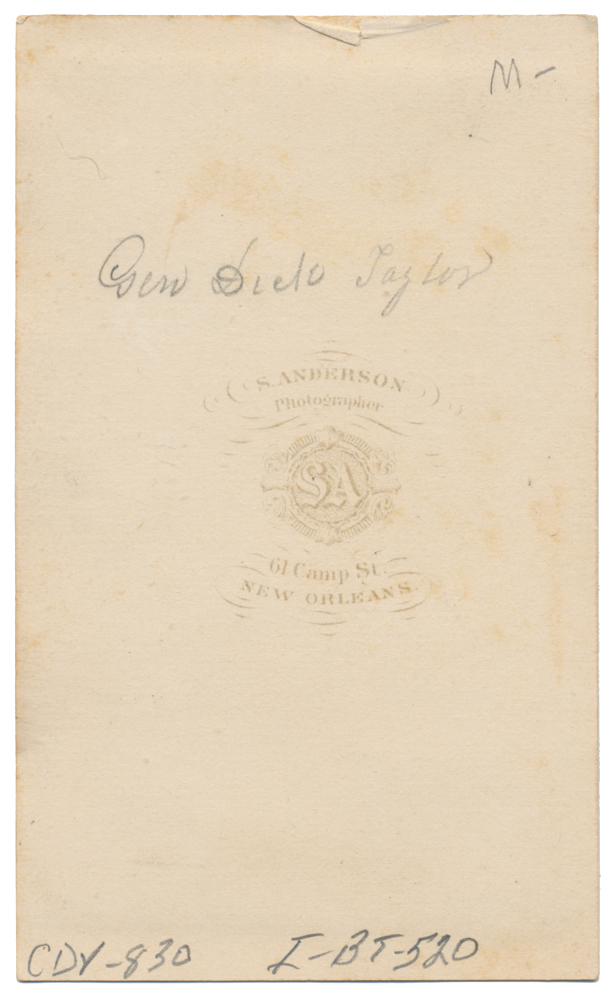 M-
Gen Dick Taylor
S. ANDERSON
Photographer
SA
61 Camp St.
NEW ORLEANS.
CDV-830 I-BT-520